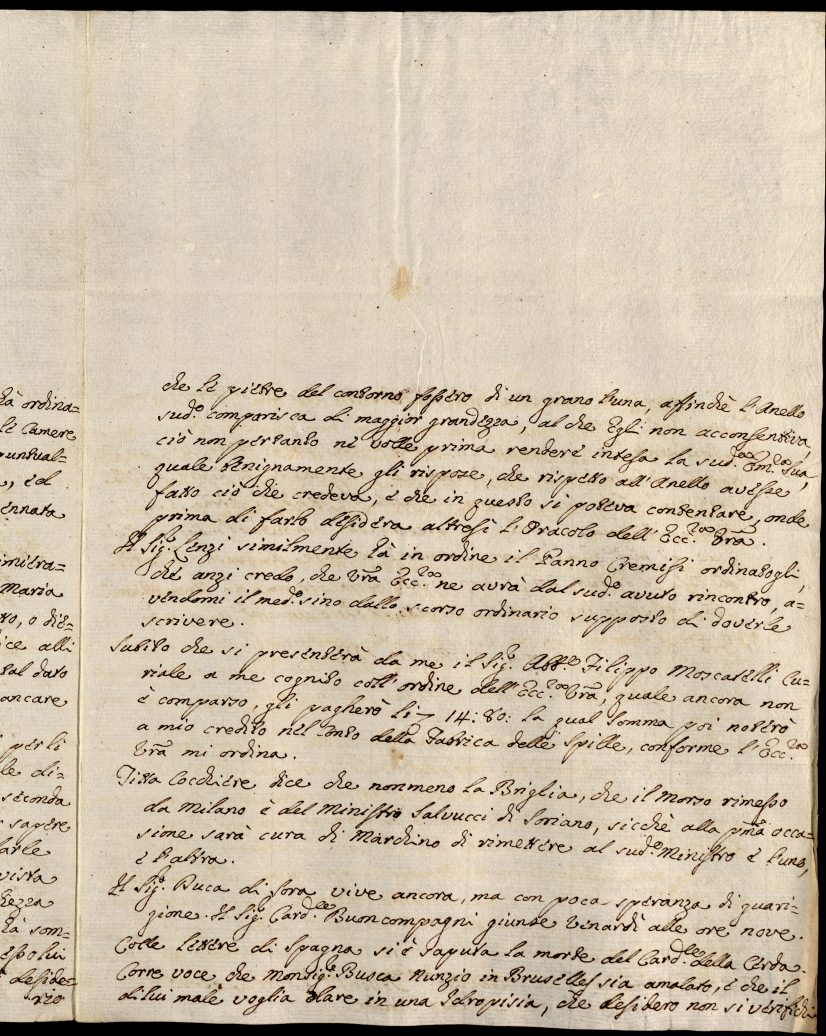 hà ordina=
le Camere
puntual=
, ed
ennata
Maria
to, o die=
ice alli
tal dato
ancare
perli
le di=
seconda
sapere
farle
vista
hezza
hà som=
esso lui
deside=
rio
che le pietre del contorno fossero di un grano l'una, affinchè l'Anello
sud.º comparisca di maggior grandezza, al che Egli non acconsentiva,
ciò non pertanto ne volle prima rendere intesa la sud.ª Em.za Sua,
quale benignamente gli rispose, che rispetto all'Anello avesse
fatto ciò che credeva, e che in questo si poteva contentare, onde
prima di farlo desidera altresì l'Oracolo dell'Ecc.za Vra.
Il Sig.r Lenzi similmente hà in ordine il Panno Cremisi ordinatogli,
che anzi credo, che Vra Ecc.za ne avrà dal sud.º avuto rincontro, a=
vendomi il med.º sino dallo scorso ordinario supposto di doverle
scrivere.
Subito che si presenterà da me il Sig.r Abb.e Filippo Moscatelli Cu=
riale a me cognito coll'ordine dell'Ecc.za Vra, quale ancora non
è comparso, gli pagherò li 14: 80: la qual somma poi noterò
a mio credito nel Conto della Fabrica delle Spille, conforme l'Ecc.za
Vra mi ordina.
Titta Cocchiere dice che nonmeno la Briglia, che il Morso rimesso
da Milano è del Ministro Salvucci di Soriano, sicchè alla pma occa=
sime sarà cura di Marchino di rimettere al sud.º Ministro è l'uno,
è l'altra.
Il Sig.r Duca di Sora vive ancora, ma con poca speranza di guari=
gione. Il Sig.r Card.le Buoncompagni giunse Venardì alle ore nove.
Colle lettere di Spagna si è saputa la morte del Card.le della Cerda.
Corre voce che Monsig.r Busca Nunzio in Bruselles sia amalato, è che il
di lui male voglia dare in una Idropisia, che desidero non si verifichi